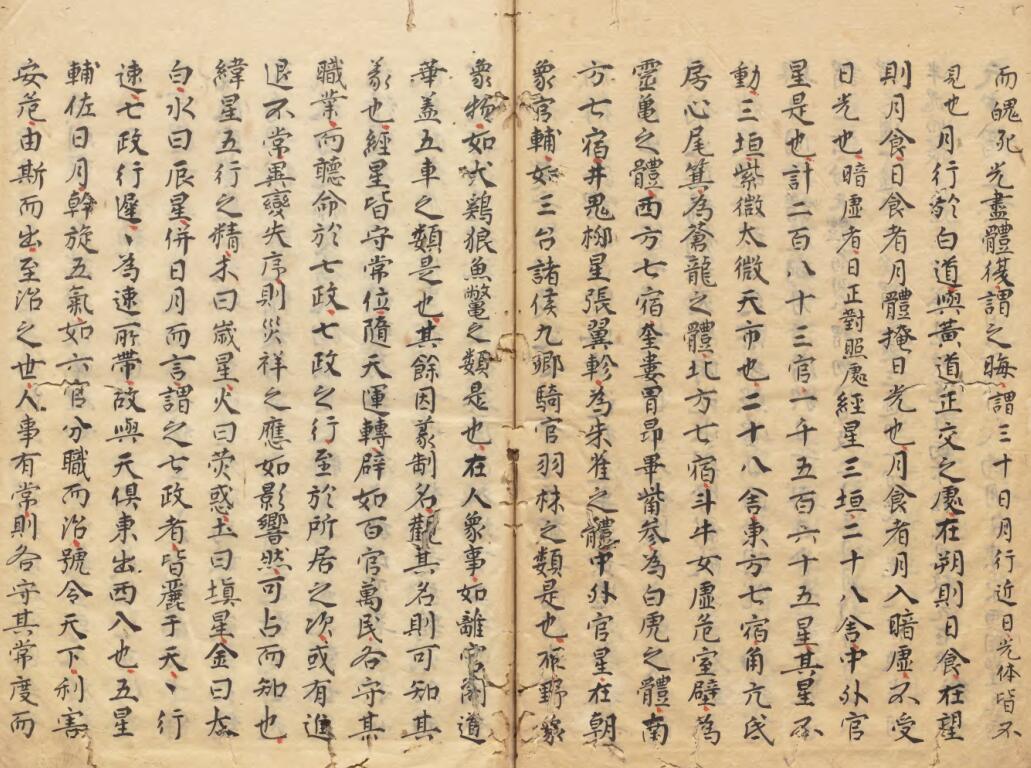 而魄死光盡體後謂之晦謂三十日月行近日光体皆不
見也月行於白道與黃道正交之處在朔則日食在望
則月食日食者月體掩日光也月食者月入暗虛不受
日光也暗虛者日正對照處經星三垣二十八舍中外官
星是也計二百八十三官一千五百六十五星其星不
動三垣紫微太微天市也二十八舍東方七宿角亢氐
房心尾箕為蒼龍之體北方七宿斗牛女虛危室壁為
靈亀之體西方七宿奎婁胃昴畢觜參為白虎之體南
方七宿井鬼柳星張翼軫為朱雀之體中外官星在朝
象官輔如三台諸侯九卿騎官羽林之類是也在野象
象物如犬鷄狼魚鱉之類是也在人象事如離宮閣道
華盖五車之類是也其餘因義制名觀其名則可知其
義也經星皆守常位隨天運轉辟如百官萬民各守其
職業而聽命於七政七政之行至於所居之次或有進
退不常異變失序則災祥之應如影響然可占而知也
緯星五行之精木曰歲星火曰熒惑土曰填星金曰太
白水曰辰星併日月而言謂之七政者皆麗于天丶行
速七政行遲丶為速所帶故與天俱東出西入也五星
輔佐日月斡旋五氣如六官分職而治號令天下利害
安危由斯而出至治之世人事有常則各守其常度而